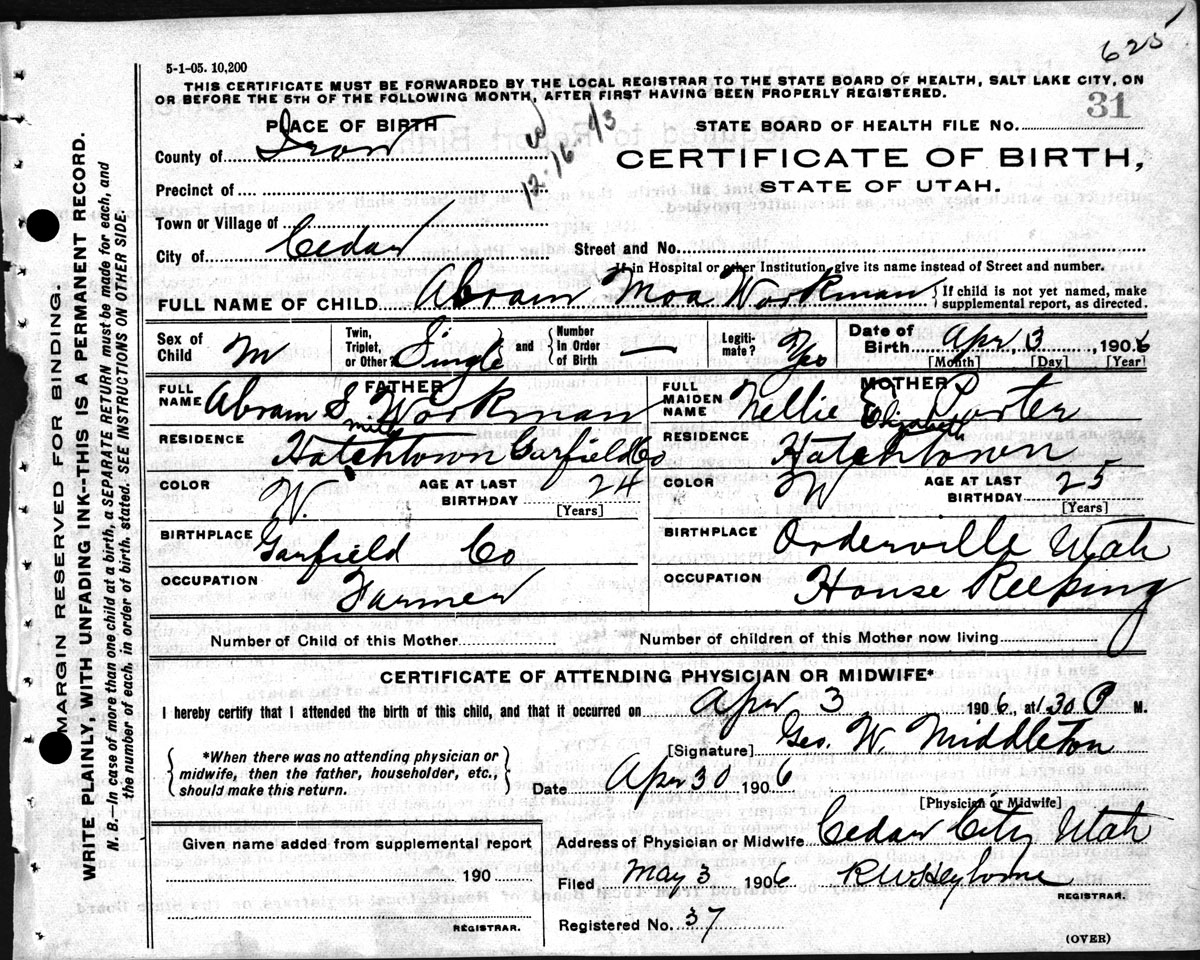 625
5-1-05. 10,200
THIS CERTIFICATE MUST BE FORWARDED BY THE LOCAL REGISTRAR TO THE STATE BOARD OF HEALTH, SALT LAKE CITY, ON
OR BEFORE THE 5TH OF THE FOLLOWING MONTH, AFTER FIRST HAVING BEEN PROPERLY REGISTERED.
31
PLACE OF BIRTH
STATE BOARD OF HEALTH FILE No.
County of Iron
CERTIFICATE OF BIRTH,
12-16-43
Precinct of
STATE OF UTAH.
Town or Village of
City of Cedar
Street and No.
If in Hospital or other Institution, give its name instead of Street and number.
FULL NAME OF CHILD Abram Moa Workman { If child is not yet named, make supplemental report, as directed.
Sex of Child M Twin, Triplet, or Other? Single and { Number In Order of Birth — Legiti-mate? Yes Date of Birth Apr, 3, 1906
[Month] [Day] [Year]
FATHER MOTHER
FULL NAME Abram S Workman FULL MAIDEN NAME Nellie E Porter
mith Elizabeth
RESIDENCE Hatchtown Garfield Co RESIDENCE Hatchtown
COLOR W. AGE AT LAST BIRTHDAY 24 COLOR W AGE AT LAST BIRTHDAY 25
[Years] [Years]
BIRTHPLACE Garfield Co BIRTHPLACE Orderville Utah
OCCUPATION Farmer OCCUPATION House Keeping
Number of Child of this Mother Number of children of this Mother now living
CERTIFICATE OF ATTENDING PHYSICIAN OR MIDWIFE*
I hereby certify that I attended the birth of this child, and that it occurred on Apr 3 1906, at 1.30 P M.
[Signature] Geo. W. Middleton
{ *When there was no attending physician or midwife, then the father, householder, etc., should make this return. }
Date Apr 30 1906
[Physician or Midwife]
Given name added from supplemental report
Address of Physician or Midwife Cedar City Utah
190
Filed May 3 1906 R W Heyborne
REGISTRAR.
Registered No. 37
REGISTRAR.
(OVER)
MARGIN RESERVED FOR BINDING.
WRITE PLAINLY, WITH UNFADING INK--THIS IS A PERMANENT RECORD.
N. B.—In case of more than one child at a birth, a SEPARATE RETURN must be made for each, and
the number of each, in order of birth, stated. SEE INSTRUCTIONS ON OTHER SIDE.